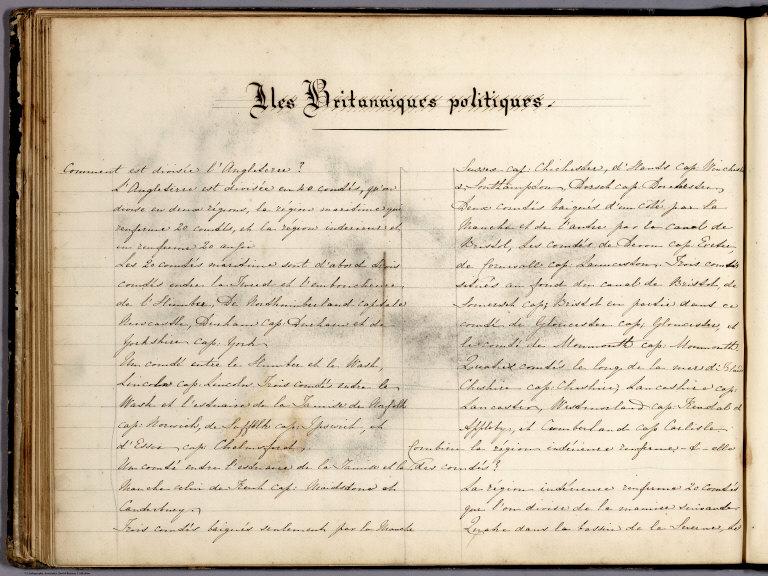 Iles Britanniques politiques.
Comment est divisée l'Angleterre ?
L'Angleterre est divisée en 40 comtés, qu'on
divise en deux régions, la région maritime qui
renferme 20 comtés, et la région intérieure et
en renferme 20 aussi
Les 20 comtés maritime sont d'abord trois
comtés entre la Tweed et l'embouchure
de l'Humber, De Northumberland capitale
Newcastle, Durham cap. Durham et de
Yorkshire cap. York.
Un comté entre le Humber et le Wash,
Lincoln cap. Lincoln. Trois comtés entre le
Wash et l'estuaire de la Tamise de Norfolk
cap. Norwich, de Suffolk cap. Ipswich, et
d'Essex cap. Chelmsford.
Un comté entre l'estuaire de la Tamise et la
Manche celui de Kent cap. Maidstone et
Canterbury.
Trois comtés baignés seulement par la Manche
Sussex cap. Chichester, d'Hants cap. Winchester
& Southampton, Dorset cap. Dorchester,
Deux comtés baignés d'un côté par la
Manche et de l'autre par le canal de
Bristol, les comtés de Devon cap. Exeter
de Cornwall cap. Launceston. Trois comtés
situés au fond du canal de Bristol, de
Somerset cap. Bristol en partie dans ce
comté de Gloucester cap. Gloucester, et
le comté de Monmouth cap. Monmouth
Quatre comtés le long de la mer
Cheshire cap. Cheshire, Lancashire cap.
Lancaster, Westmorland cap. Kendal et
Appleby, et Cumberland cap. Carlisle.
Combien la région intérieure renferme-t-elle
des comtés ?
La région intérieure renferme 20 comtés
que l'on divise de la manière suivante
Quatre dans le bassin de la Severne, de